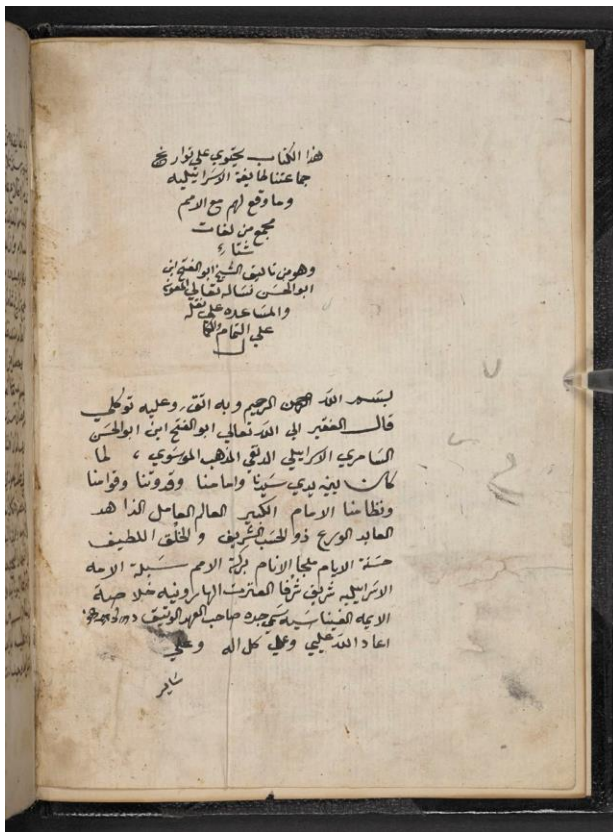 هذا الكتاب يحتوي علي تواريخ
جماعتنا لهايفة الاسرائيليه
وما وقع لهم مع الامم
مجمع من لغات
شتا
وهو من تاليف الشيخ ابو الفتح ابن
ابو الحسن نساله تعالي المعونه
والمساعده علي نقله
علي التمام والكما
ل
بسم الله الرحمن الرحيم وبه اثق وعليه توكلي
قال الفقير الي الله تعالي ابو الفتح ابن ابو الحسن
السامري الاسرايلي المذهب الموسوي ، لما
كان بين يدي سيدنا وامامنا وقدوتنا وقوامنا
ونظامنا الامام الكبير العالم العامل الذاهد
العابد الورع ذو الحسب الشريف والخلق اللطيف
حسنة الايام ملجا الانام بركة الامم الامه
الاسرايليه شريف شرفا العترت الهارونيه خلاصة
الايمه جده صاحب العهد الوثيق
اعاد الله عليي وعلي كل اله وعلي
ساير